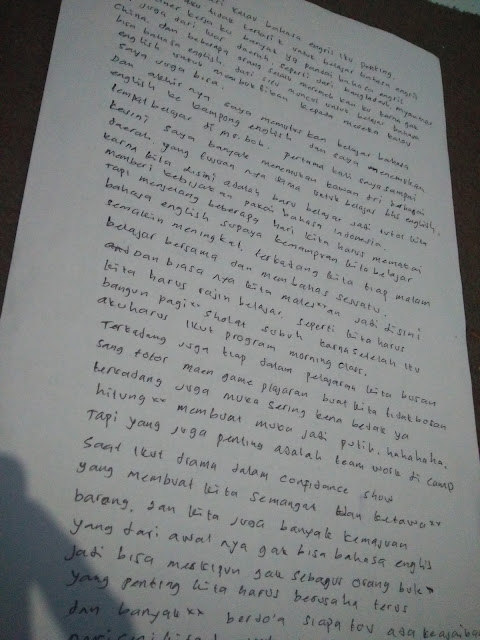 kalau bahasa engris itu penting.
aku tidak tertarik untuk belajar bahasa engris
kerja ku banyak yg pandai bahasa engris
juga dari luar daerah, seperti dari bangladesh, myanmar
China, dan beberapa orang selalu kan ku karna gak
bisa bahasa english, dari situ muncul untuk belajar bahasa
english untuk membuktikan kepada mereka kalau
saya juga bisa.
Dan akhir nya saya memutuskan belajar bahasa
english ke kampong english dan saya menemukan
tempat belajar di ms. bob. pertama kali saya sampai
kesini saya banyak menemukan kawan dri
daerah yang tujuan nya sama untuk belajar bhs english,
karna kita disini adalah baru belajar jadi tutor kita
memberi kebijakan pakai bahasa indonesia.
Tapi menjelang beberapa hari kita harus memakai
bahasa english supaya kemampuan kita belajar
semakin meningkat. terkadang kita tiap malam
belajar bersama dan membahas sesuatu.
Dan biasa nya kita males"an jadi disini
kita harus rajin belajar, seperti kita harus
bangun pagi" sholat subuh karna setelah itu
aku harus ikut program morning class.
Terkadang juga tiap dalam pelajaran kita bosan
sang totor maen game plajaran buat kita tidak bosan
terkadang juga muka sering kena bedak ya
hitung" membuat muka jadi putih. hahahaha.
Tapi yang juga penting adalah team work di camp
Saat ikut drama dalam confidance show
yang membuat kita semangat dan ketawa"
bareng, dan kita juga banyak kemajuan
yang dari awal nya gak bisa bahasa englis
jadi bisa meskipun gak sebagus orang bule"
yang penting kita harus berusaha terus
dan banyak" berdo'a siapa tou ada keajaiban